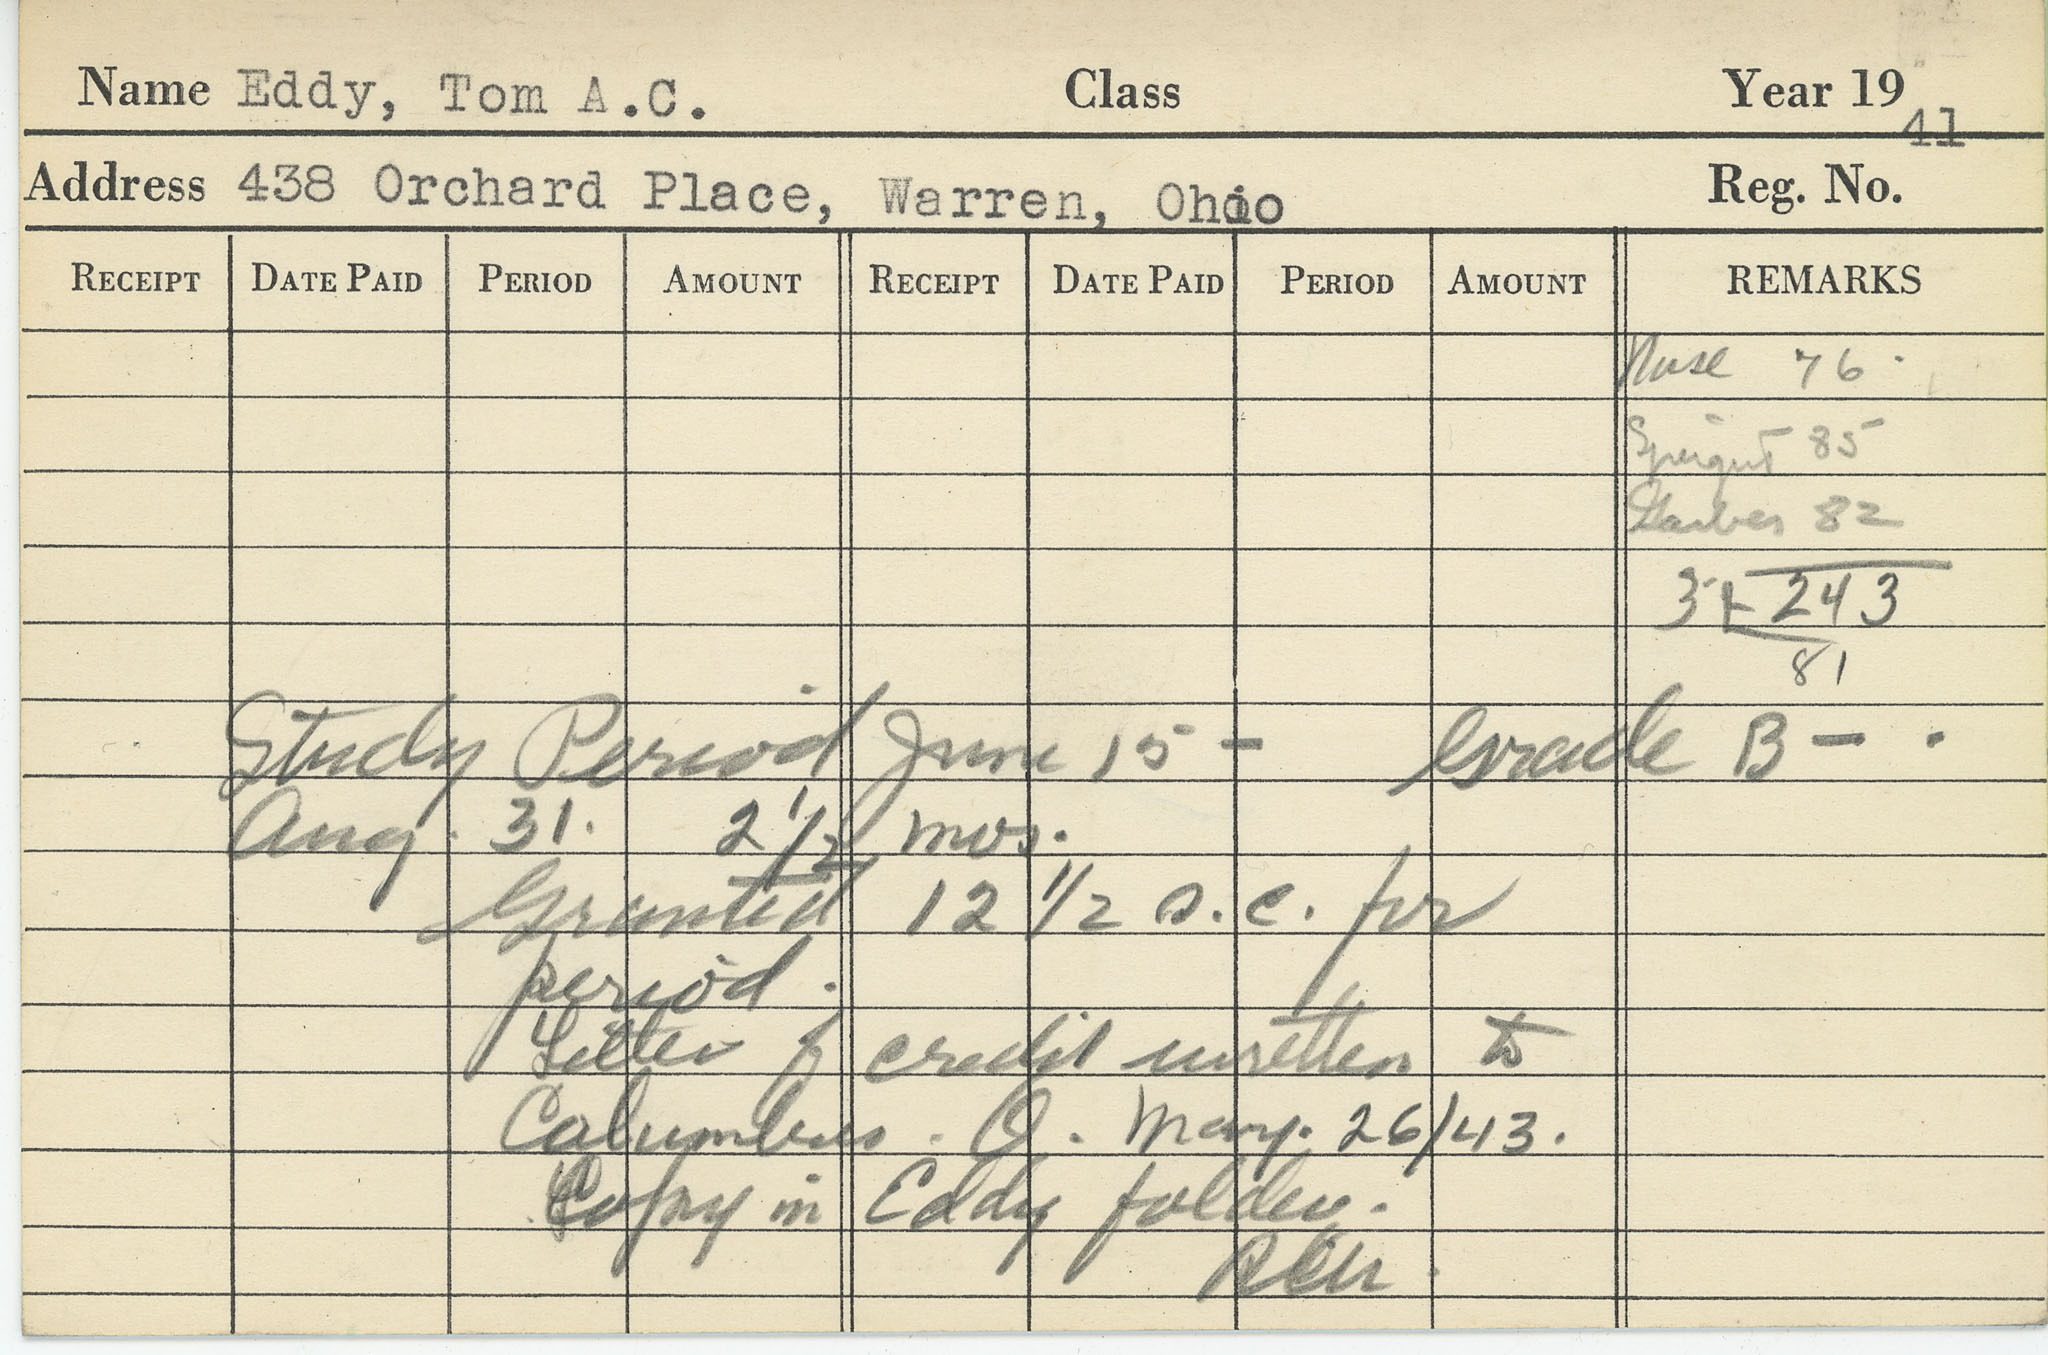 Name Eddy, Tom A.C. Class Year 1941
Address 438 Orchard Place, Warren, Ohio Reg. No.
RECEIPT DATE PAID PERIOD AMOUNT RECEIPT DATE PAID PERIOD AMOUNT REMARKS
76
85
82
3 243
81
Study Period June 15 - Grade B -
Aug. 31. 2 1/2 mos.
Granted 12 1/2 s.c. for
period.
Letter of credit written to
Columbus. O. May. 26/43.
Copy in Eddy folder.